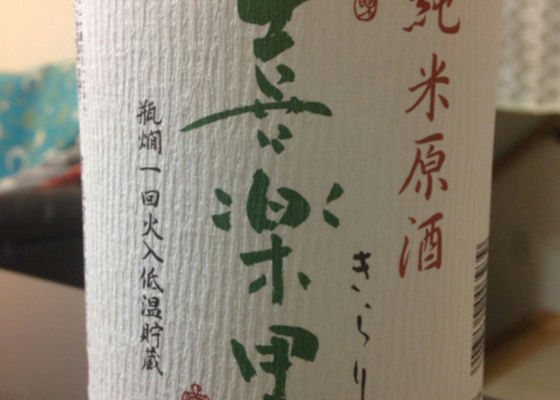 純米原酒
きらり
喜楽里
瓶燗一回火入低温貯蔵